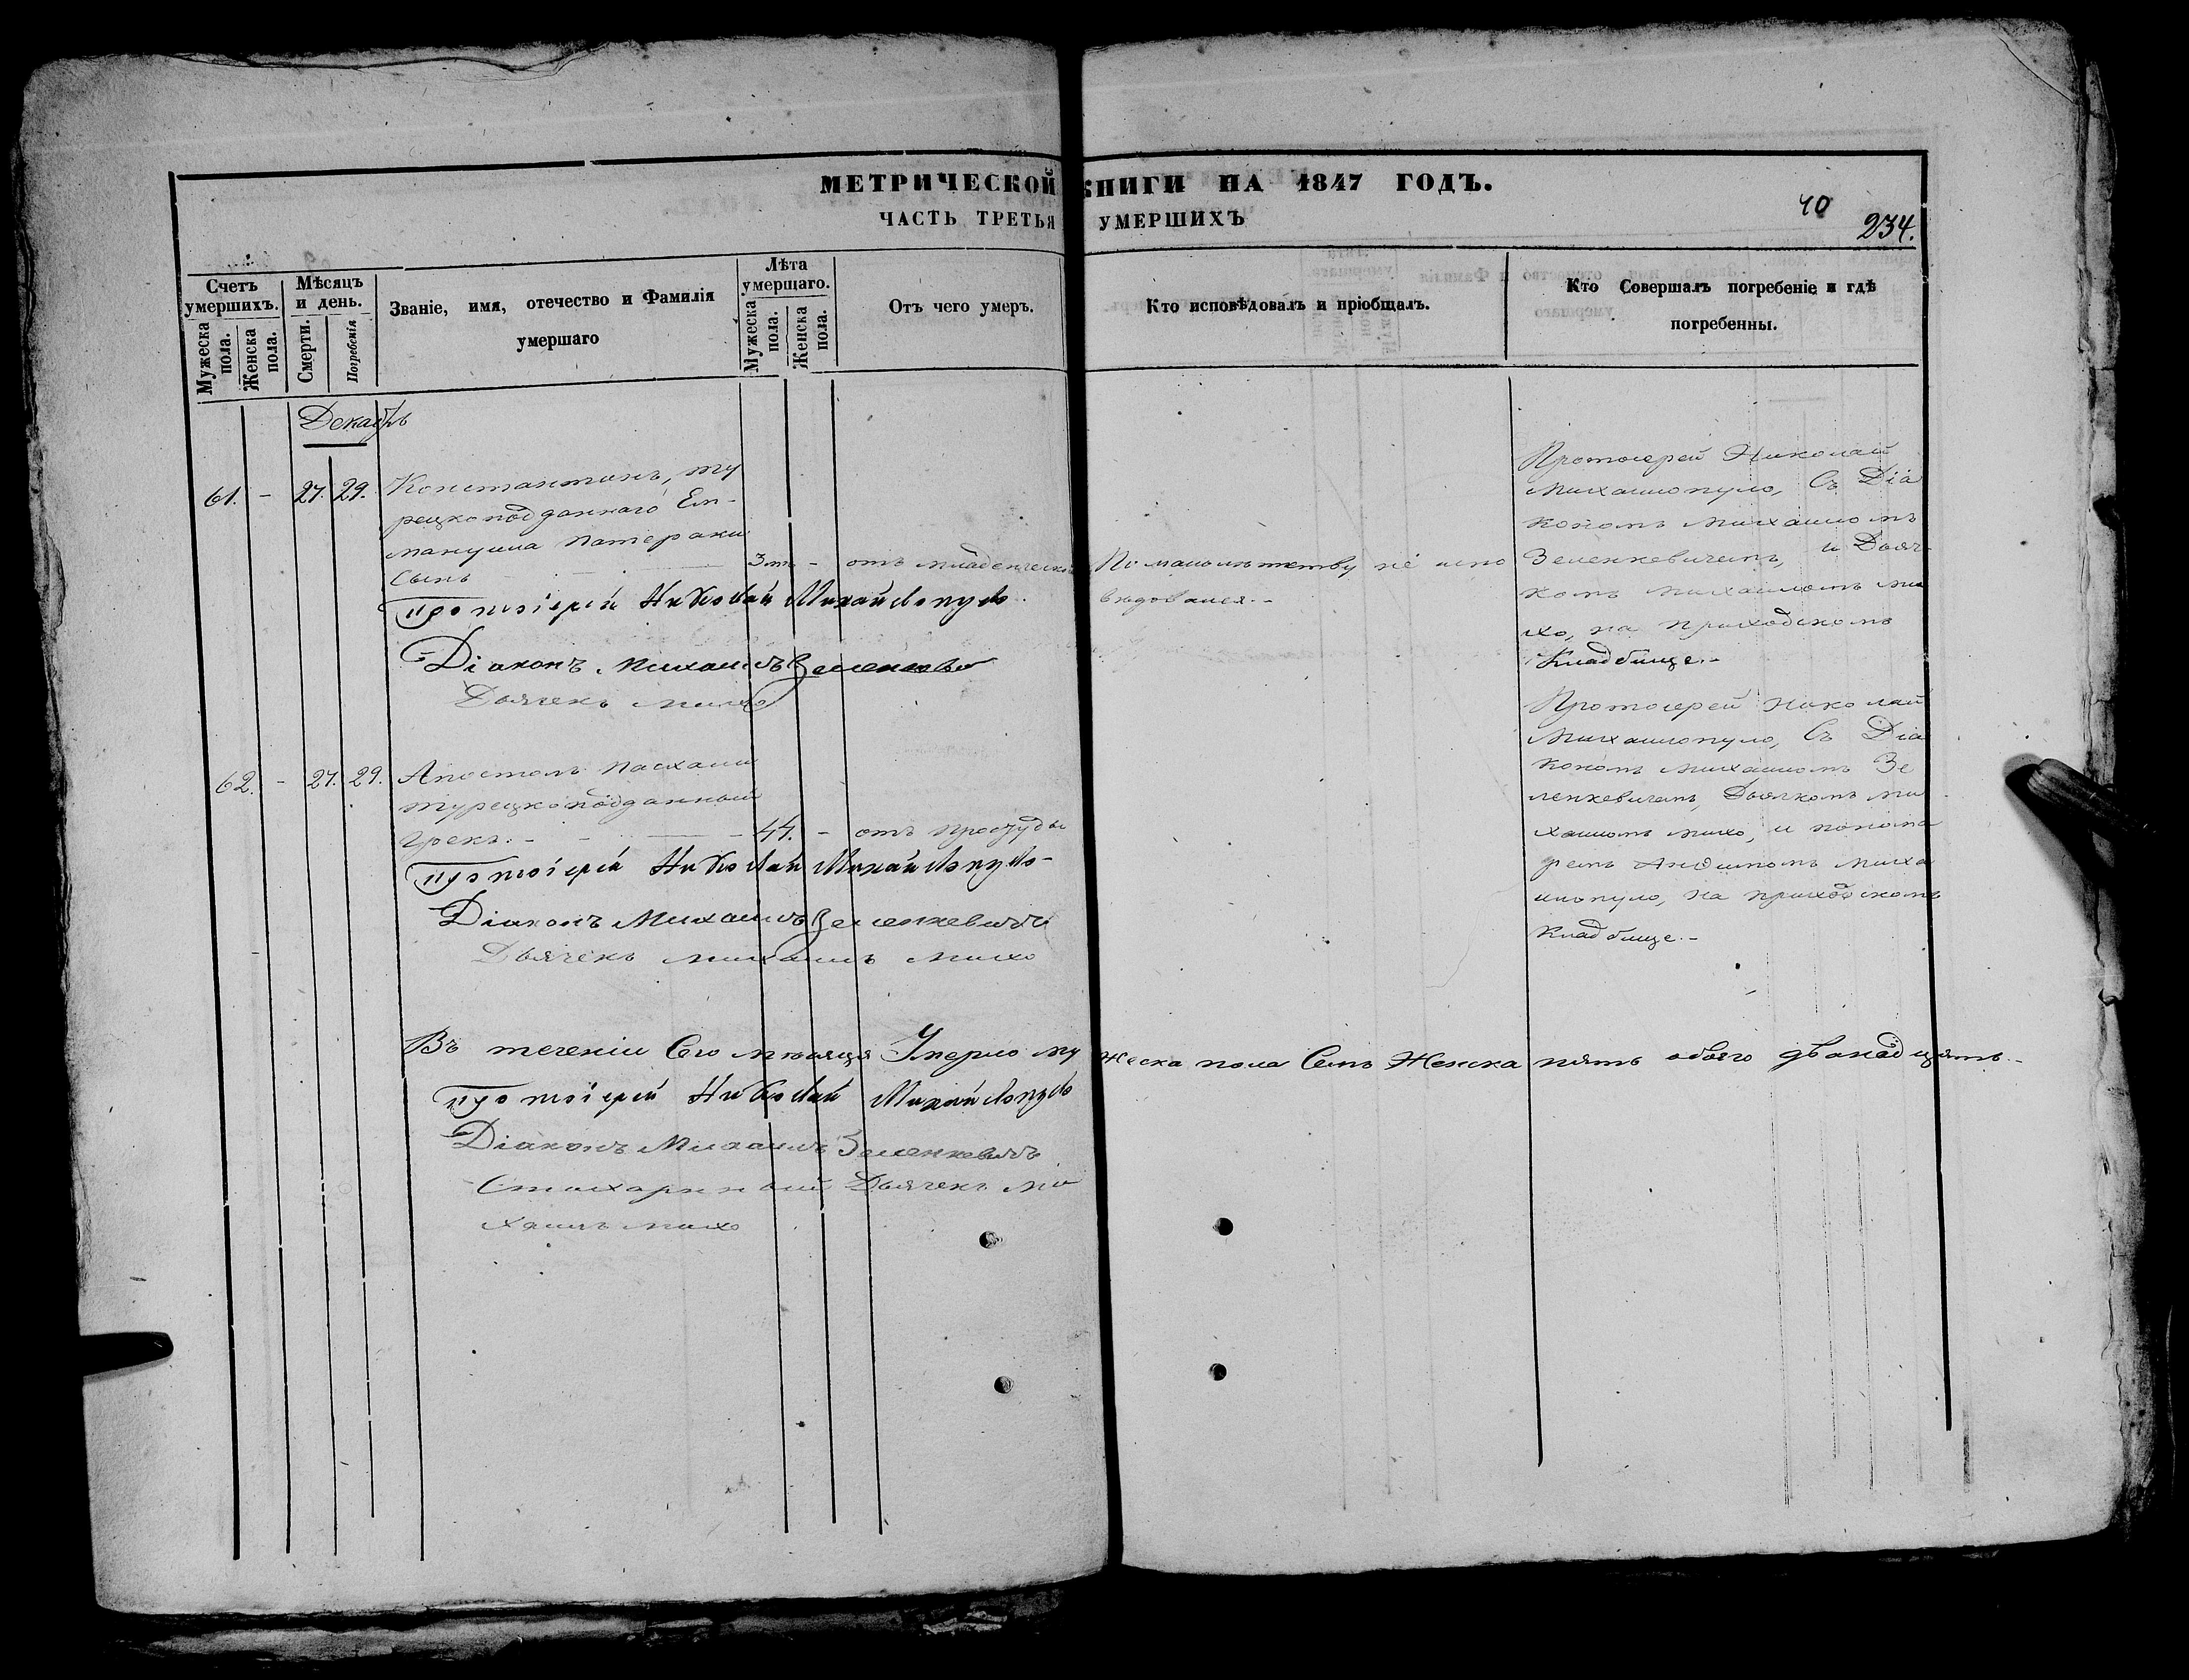 МЕТРИЧЕСКОЙ КНИГИ НА 1847 ГОДЪ.
ЧАСТЬ ТРЕТЬЯ УМЕРШИХЪ
40
234.
Счетъ умершихъ.
Мужеска пола.
Женска пола.
Мѣсяцъ и день.
Смерти.
Погребенія
Званіе, имя, отечество и Фамилія
умершаго
Лѣта умершаго.
Мужеска пола.
Женска пола.
Отъ чего умеръ.
Кто исповѣдовалъ и пріобщалъ.
Кто Совершалъ погребеніе и гдѣ
погребенны.
Декабрь
61. - 27. 29. Константинъ, ту
рецкоподданнаго Ем-
мануила Патераки
сынъ - 3 - отъ младенческой
Протоіерей Николай Михайлопуло
Діаконъ Михаилъ Зеленкеви
Дьячекъ Михо
По малолѣтству не испо
вѣдовался.-
Протоіерей Николай
Михаилопуло, съ Діа
кономъ Михаиломъ
Зеленкевичемъ, и Дьяч-
комъ Михаиломъ Ми
хо, на приходскомъ
Кладбище.-
62. - 27. 29. Апостолъ Пасхали
турецкоподданный
грекъ. - 44. - отъ простуды
Протоіерей Николай Михайлопуло-
Діаконъ Михаилъ Зеленкевичъ
Дьячекъ Михаилъ Михо
Протоіерей Николай
Михаилопуло, съ Діа
кономъ Михаиломъ Зе
ленкевичемъ, Дьячкомъ Ми
хаиломъ Михо, и понома
ремъ Михаи
лопуло, на приходскомъ
Кладбище.-
Въ теченіи Сего мѣсяца Умерло му жеска пола Семь Женска пять обоего двѣнадцать.-
Протоіерей Николай Михайлопуло
Діаконъ Михаилъ Зеленкевичъ
Стихарный Дьячекъ Ми
хаилъ Михо